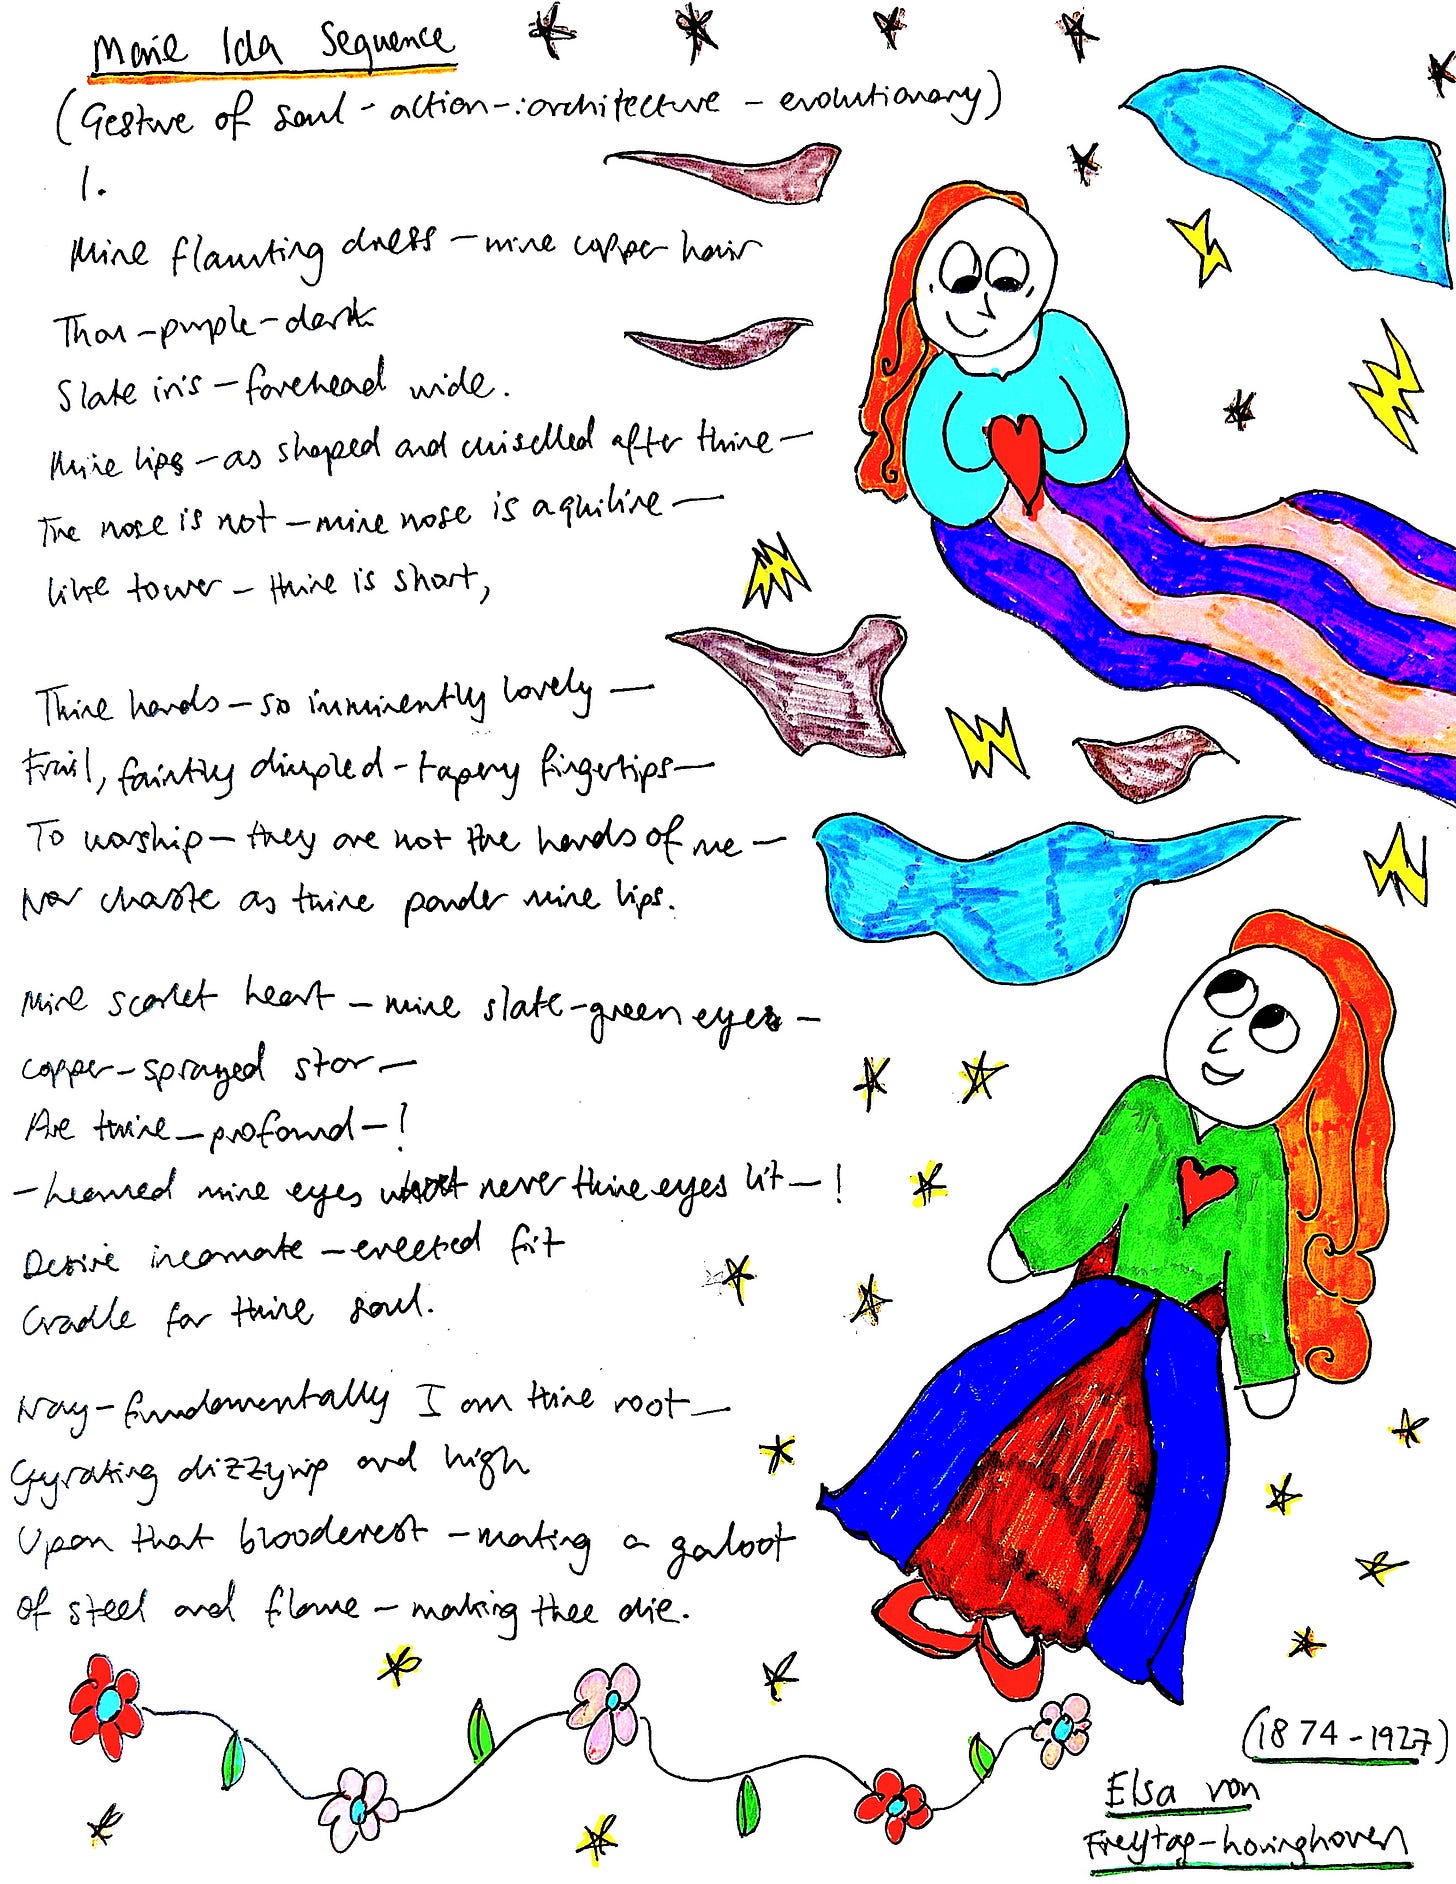 Marie Ida Sequence
(Gesture of soul - action-: architecture - evolutionary)
1.
Mine flaunting dress - mine copper hair
Thou - purple-dark
Slate iris - forehead wide.
Mine lips - as shaped and chiselled after thine -
The nose is not - mine nose is aquiline -
like tower - thine is short,
Thine hands - so imminently lovely -
Frail, faintly dimpled - tapery fingertips -
To worship - they are not the hands of me -
Nor chaste as thine ponder mine lips.
Mine scarlet heart - mine slate-green eyes -
copper-sprayed star -
Are thine - profound - !
- learned mine eyes never thine eyes lit - !
Desire incarnate - erected fit
Cradle for thine soul.
Nay - fundamentally I am thine root -
Gyrating dizzying and high
Upon that bloodcrest - mating a galoot
of steel and flame - making thee die.
(1874-1927)
Elsa von
Freytag-horinghoven